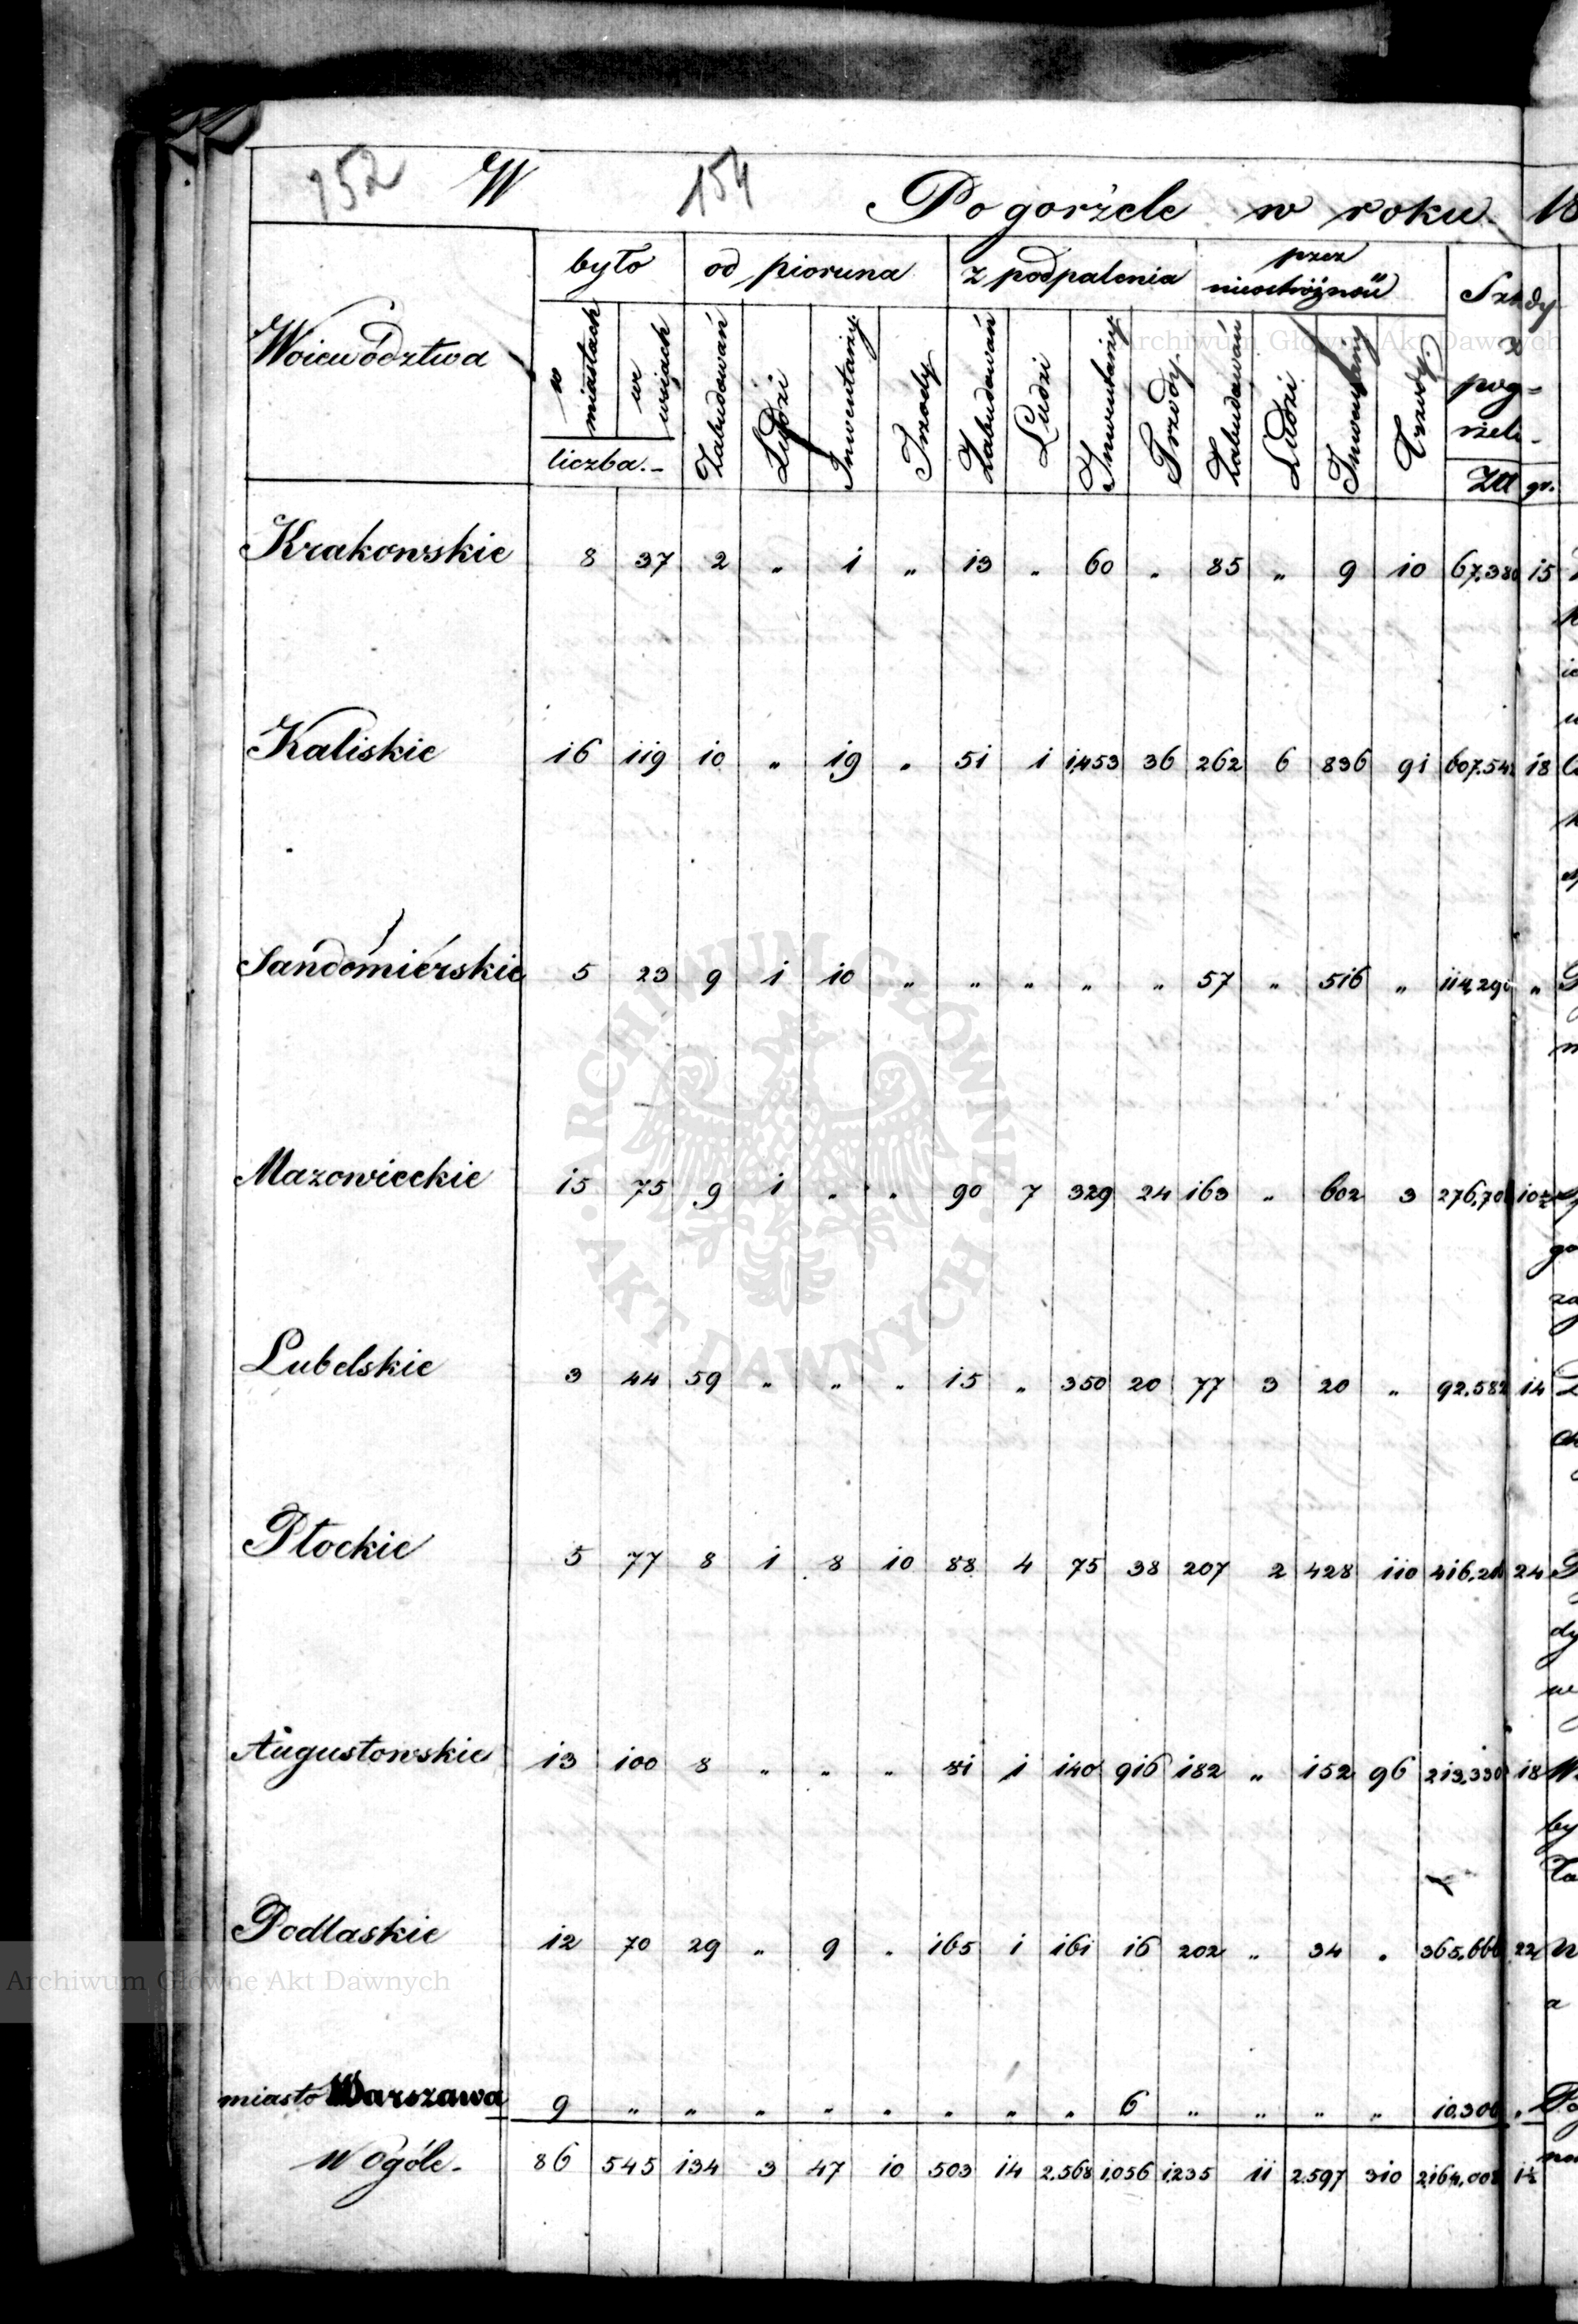 152 W 154 Pogorżele w roku 18
Woiewództwa było od pioruna z podpalenia przez nieostróżność Szkody z pogorzeli
w miastach we wsiach Zabudowań Ludzi Inwentarzy Trzody Zabudowań Ludzi Inwentarzy Trzody Zabudowań Ludzi Inwentarzy Trzody
liczba.- Zł gr.
Krakowskie 8 37 2 " 1 " 13 " 60 " 85 " 9 10 67,380 15
Kaliskie 16 119 10 " 19 " 51 1 1,453 36 262 6 836 91 607.54 18
Sandomiérskie 5 23 9 1 10 " " " " " 57 " 516 " 114,29 "
Mazowieckie 15 75 9 1 " " 90 7 329 24 163 " 602 3 276,70 10½
Lubelskie 3 44 59 " " " 15 " 350 20 77 3 20 " 92.582 14
Płockie 5 77 8 1 8 10 88 4 75 38 207 2 428 110 416,2 24
Augustowskie 13 100 8 " " " 81 1 140 916 182 " 152 96 213,330 18
Podlaskie 12 70 29 " 9 " 165 1 161 16 202 " 34 " 365,666 22
miasto Warszawa 9 " " " " " " " " 6 " " " " 10.300 "
W ogóle- 86 545 134 3 47 10 503 14 2,568 1,056 1,235 11 2,597 310 2,164,00
ARCHIWUM GŁÓWNE · AKT DAWNYCH ·
Archiwum Główne Akt Dawnych
Archiwum Główne Akt Dawnych